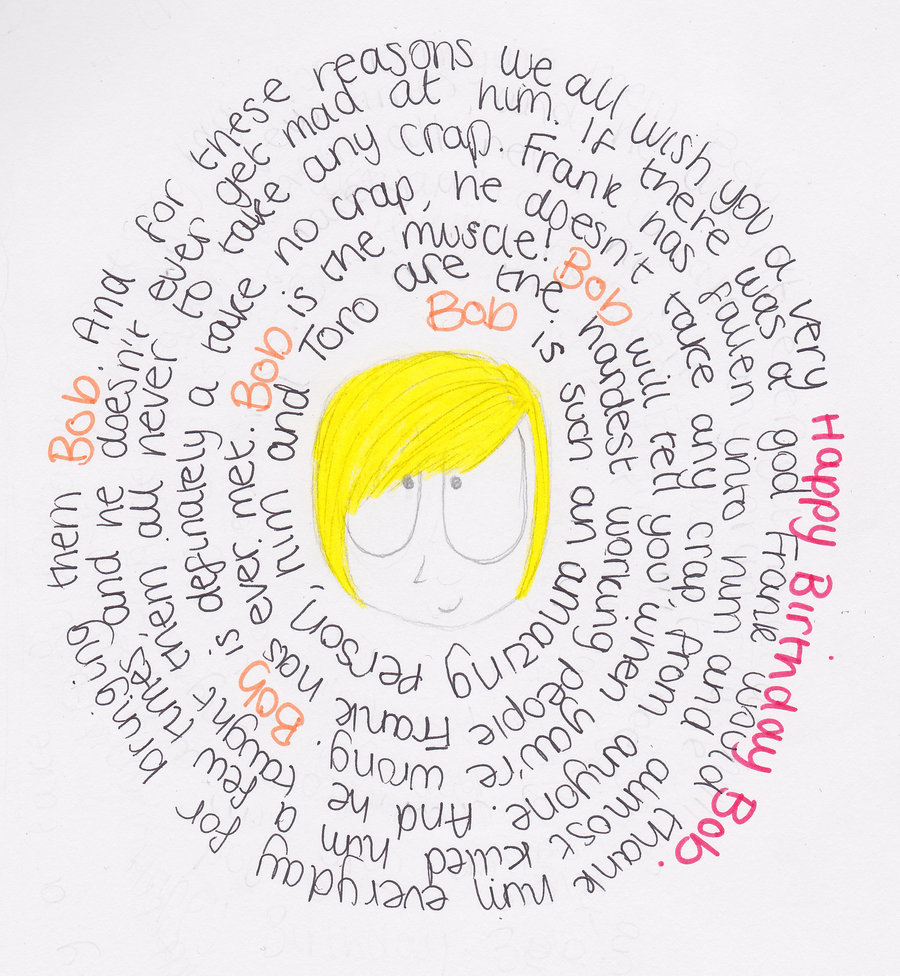 Bob is such an amazing person, him and Toro are the
hardest working people Frank has ever met. Bob is the muscle!
Bob will tell you when you're wrong. Bob is definately a take no crap, he doesn't
take any crap, from anyone. And he taught them all never to take any crap. Frank has
fallen into him and almost killed him a few times, and he doesn't ever get mad at him. If there was a
god Frank would thank him everyday for bringing them Bob. And for these reasons we all wish you a very
Happy Birthday Bob.